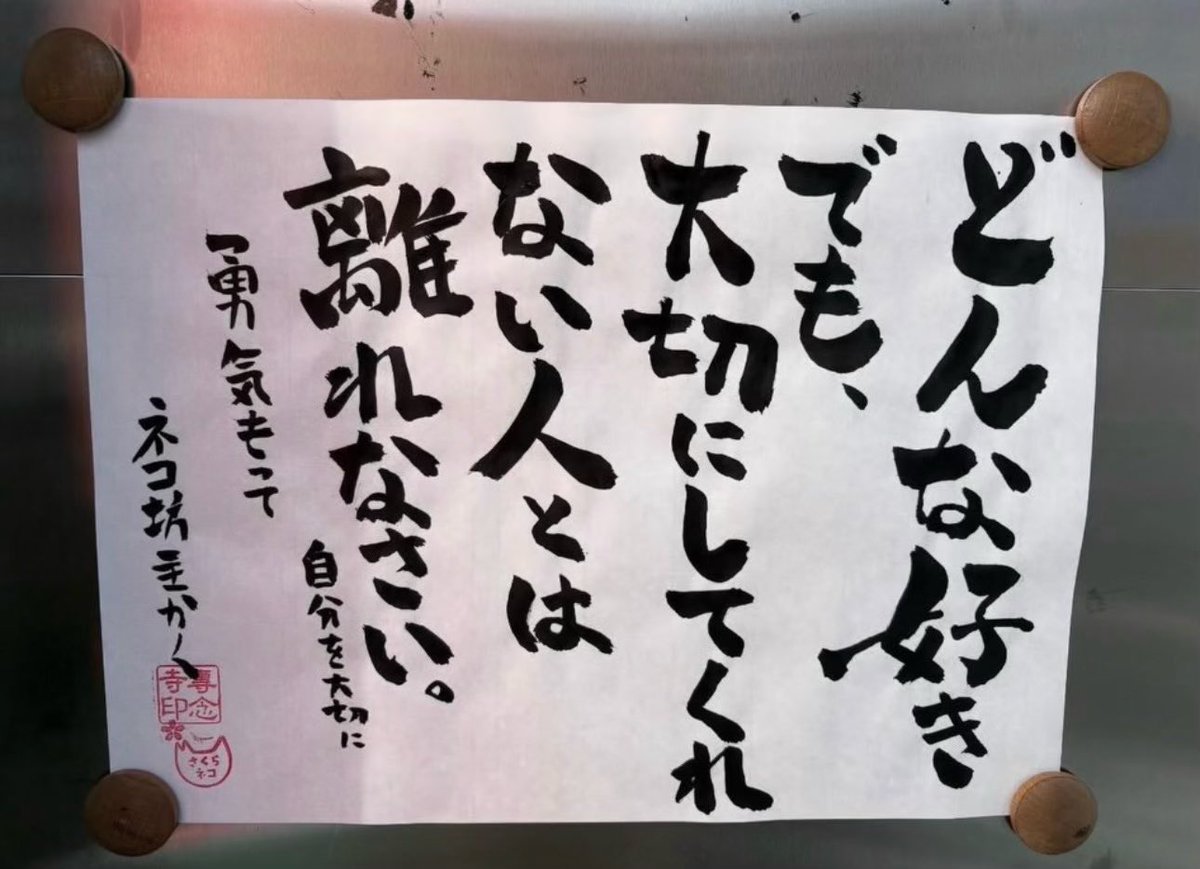 どんな好き
でも、
大切にしてくれ
ない人とは
離れなさい。
自分を大切に
勇気もって
ネコ坊主かく
専念
寺印
さくら
ネコ